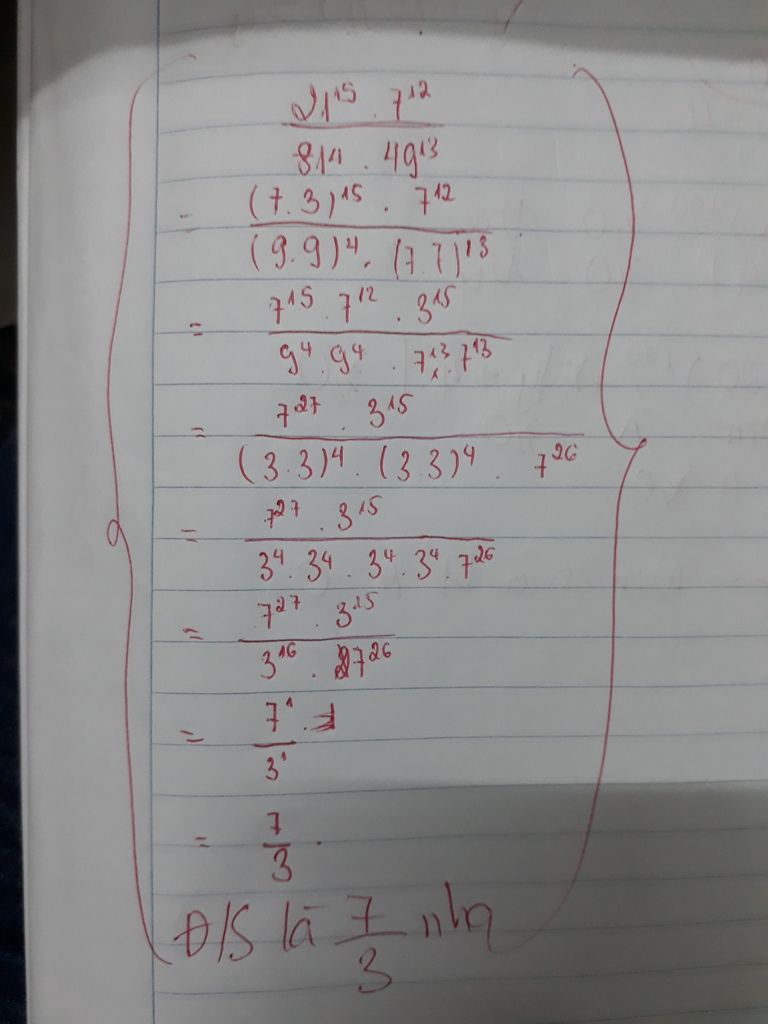 21¹⁵ . 7¹²
81⁴ . 49¹³
= (7.3)¹⁵ . 7¹²
(9.9)⁴ . (7.7)¹³
= 7¹⁵ . 7¹² . 3¹⁵
9⁴ . 9⁴ . 7¹³ . 7¹³
= 7²⁷ . 3¹⁵
(3.3)⁴ . (3.3)⁴ . 7²⁶
= 7²⁷ . 3¹⁵
3⁴ . 3⁴ . 3⁴ . 3⁴ . 7²⁶
= 7²⁷ . 3¹⁵
3¹⁶ . 7²⁶
= 7¹ . 1
3¹
= 7
3 .
Đ/S là 7 nha
3